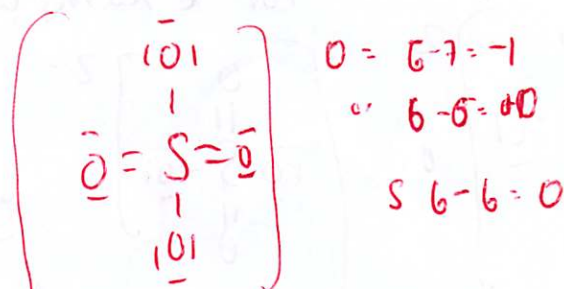 |O|
|
O = S = O
|
|O|
O = 6-7 = -1
" 6-6 = 0
S 6-6 = 0